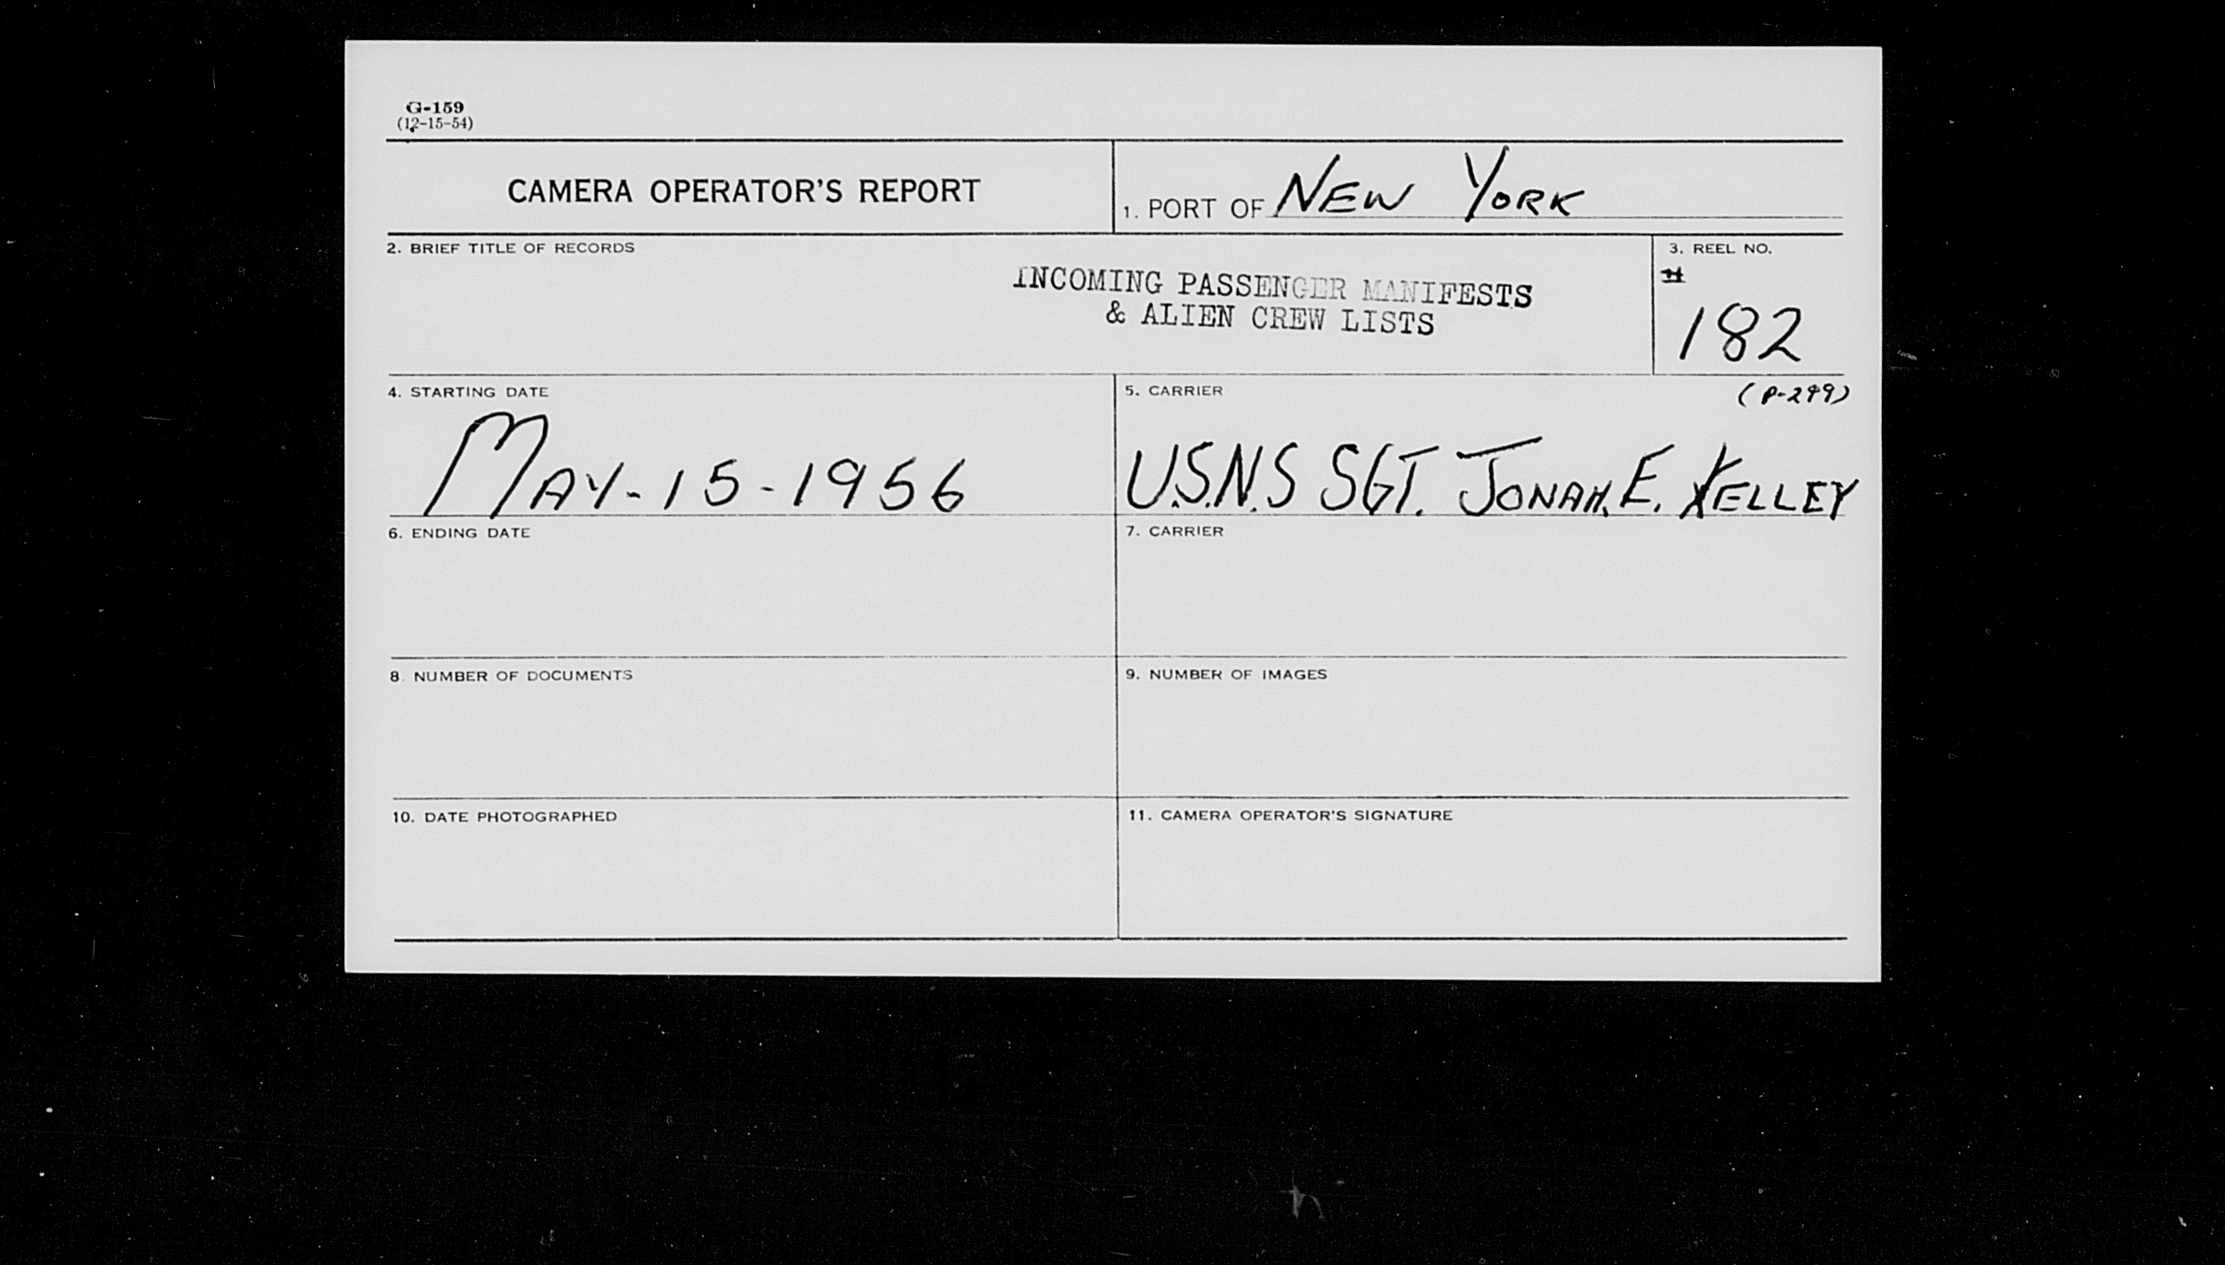 G-159
(12-15-54)
CAMERA OPERATOR'S REPORT
1. PORT OF NEW YORK
2. BRIEF TITLE OF RECORDS
INCOMING PASSENGER MANIFESTS
& ALIEN CREW LISTS
3. REEL NO.
#
182
4. STARTING DATE
MAY-15-1956
5. CARRIER
(P-299)
U.S.N.S SGT. JONAH. E. KELLEY
6. ENDING DATE
7. CARRIER
8. NUMBER OF DOCUMENTS
9. NUMBER OF IMAGES
10. DATE PHOTOGRAPHED
11. CAMERA OPERATOR'S SIGNATURE